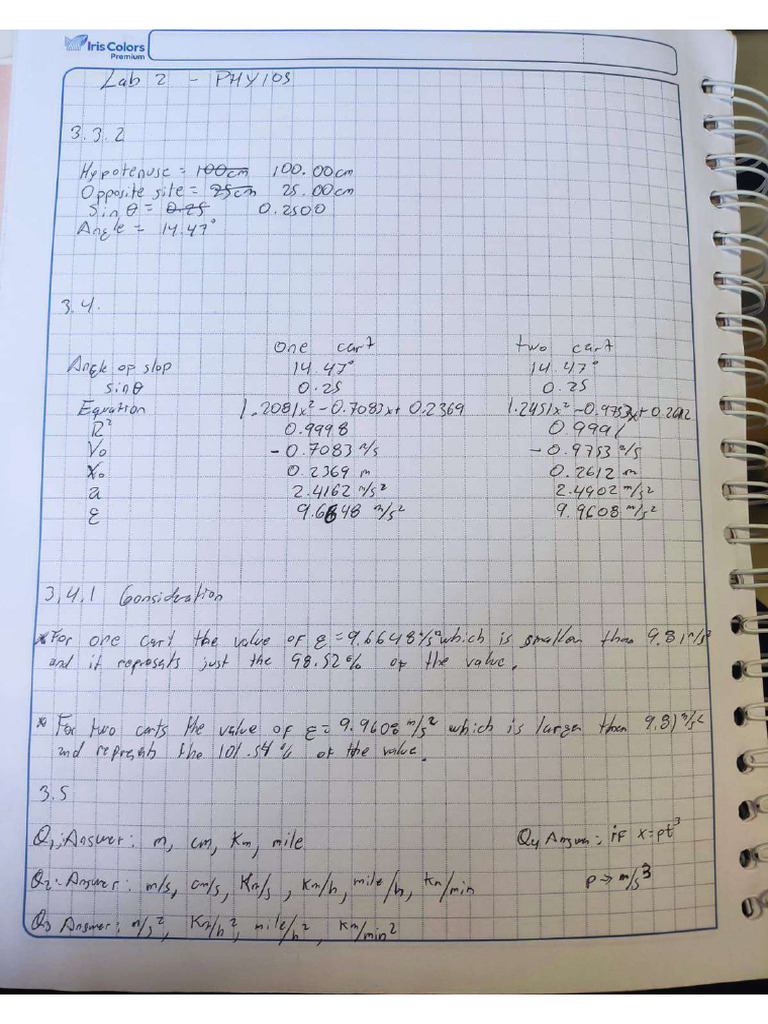 Iris Colors
Premium
Lab 2 - PHY105
3.3.2
Hypotenuse = 100cm 100.00cm
Opposite site = 25cm 25.00cm
Sin θ = 0.25 0.2500
Angle = 14.47°
3.4.
one cart two cart
Angle op slop 14.47° 14.47°
sinθ 0.25 0.25
Equation 1.2081x² - 0.7083x + 0.2369 1.2451x² - 0.9753x + 0.2612
R² 0.9998 0.9991
V₀ - 0.7083 m/s - 0.9753 m/s
X₀ 0.2369 m 0.2612 m
a 2.4162 m/s² 2.4902 m/s²
ε 9.6648 m/s² 9.9608 m/s²
3.4.1 Consideration
* For one cart the value of ε = 9.6648 m/s² which is smaller than 9.81 m/s²
and it represents just the 98.52% of the value.
* For two carts the value of ε = 9.9608 m/s² which is larger than 9.81 m/s²
and represents the 101.54% of the value.
3.5
Q1; Answer: m, cm, Km, mile Q4 Answer: if x=pt³
Q2: Answer: m/s, cm/s, Km/s, Km/h, mile/h, km/min p → m/s³
Q3 Answer: m/s², Km/h², mile/h², Km/min²